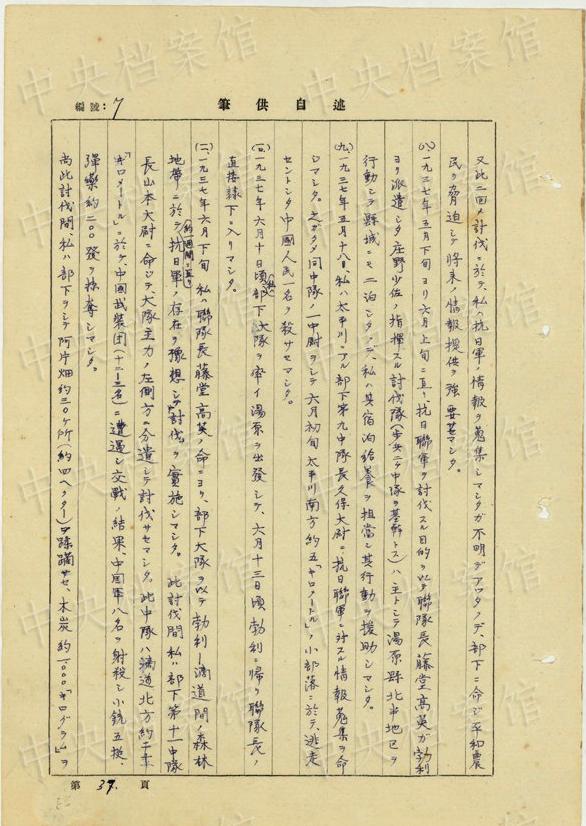 編號：7
述自供筆
又此二回ノ討伐ニ於テ、私ハ抗日軍ノ情報ヲ蒐集シマシタガ不明デアツタノデ、部下ニ命ジ平和農
民ヲ脅迫シテ将来ノ情報提供ヲ強要セマシタ。
(八)一九三七年五月下旬ヨリ六月上旬ニ亘リ抗日聯軍ヲ討伐スル目的ヲ以テ聯隊長藤堂高英ガ勃利
ヨリ派遣シタ庄野少佐ノ指揮スル討伐隊(歩兵二ケ中隊ヲ基幹トス)ハ主トシテ湯原縣北 地区ヲ
行動シテ縣城ニモ二泊シタノデ、私ハ其宿泊給養ヲ担当シ其行動ヲ援助シマシタ。
(九)一九三七年五月十八日、私ハ太平川ニアル部下第九中隊長久保大尉ニ抗日聯軍ニ対スル情報蒐集ヲ命
ジマシタ。之ガタメ同中隊ノ一中尉ヲシテ六月初旬太平川南方約五「キロメートル」ノ小部落ニ於テ、逃走
セントシタ中國人民一名ヲ殺サセマシタ。
(一)一九三七年六月十日頃私ハ部下大隊ヲ率イ湯原ヲ出發シテ、六月十三日頃勃利ニ帰リ聯隊長ノ
直接隷下ニ入リマシタ。
(二)一九三七年六月下旬(約一週間ニ亘リ)私ハ聯隊長藤堂高英ノ命ニヨリ、部下大隊ヲ以テ勃利—滴道間ノ森林
地帯ニ於テ抗日軍ノ存在ヲ豫想シテ討伐ヲ實施シマシタ。此討伐間私ハ部下第十一中隊
長山本大尉ニ命ジテ、大隊主力ノ左側方ニ分遣シテ討伐サセマシタ。此中隊ハ滴道北方約二十
「キロメートル」ニ於ケ、中國武装団(十二—三名)ニ遭遇シ交戦ノ結果、中國軍八名ヲ射殺シ小銃五挺、
彈藥約二〇〇發ヲ掠奪シマシタ。
尚此討伐間、私ハ部下ヲシテ阿片畑約三〇ケ所(約四ヘクター)ヲ蹂躙サセ、木炭約一〇〇〇「キログラム」ヲ
第 37. 頁
中央档案馆